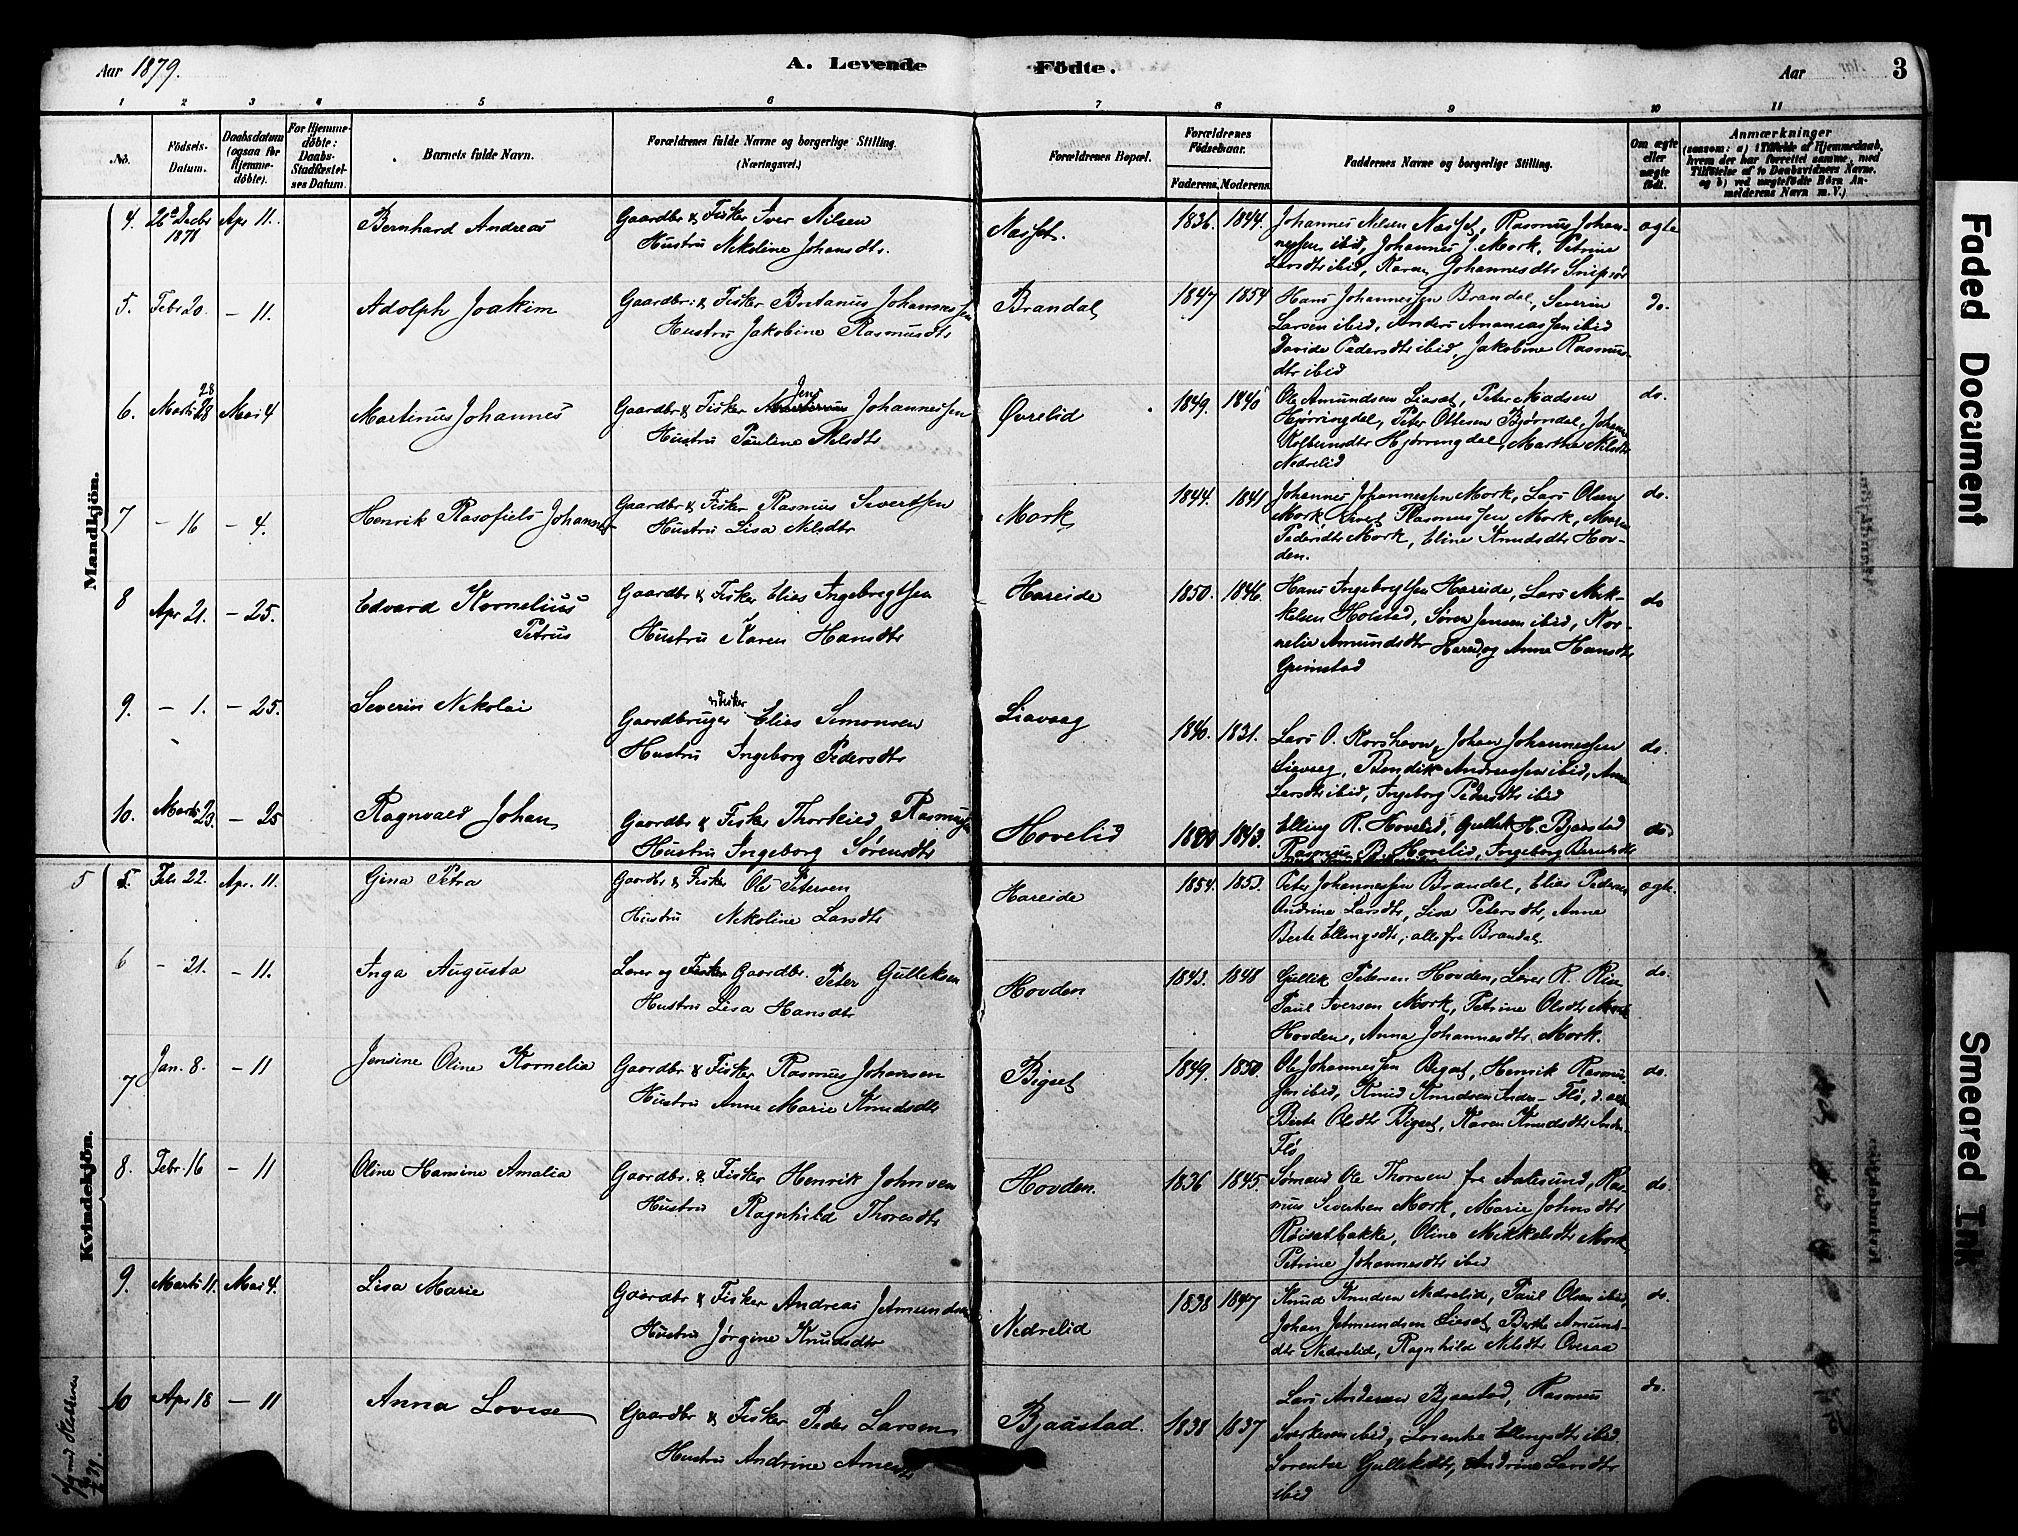 Aar 1879.
A. Levende Födte.
Aar
3
1 2 3 4 5 6 7 8 9 10 11
No.
Födsels-
Datum.
Daabsdatum
(ogsaa for
Hjemme-
döbte).
For Hjemme-
döbte:
Daabs-
Stadfæstel-
ses Datum.
Barnets fulde Navn.
Forældrenes fulde Navne og borgerlige Stilling.
(Næringsvei.)
Forældrenes Bopæl.
Forældrenes
Födselsaar.
Faderens. Moderens.
Faddernes Navne og borgerlige Stilling.
Om ægte
eller
uægte
födt.
Anmærkninger
(saasom: a) i Tilfælde af Hjemmedaab,
hvem der har forrettet samme, med
Tilföielse af to Daabsvidners Navne,
og b) ved uægtefödte Börn An-
melderens Navn m. V.)
Mandkjön.
4. 26 Decbr 1878 Apr 11. Bernhard Andreas
Gaardbr & Fisker Iver Nilsen
Hustru Nikoline Johansdtr.
1836. 1844.
Johannes Nilsen Rasmus Johan-
nessen ibid, Johannes J. Mork, Petrine
Larsdtr ibid, Karen Johannesdtr Snipsør
ægte
5. Febr 20. – 11. Adolph Joakim
Gaardbr: & Fisker Johannessen
Hustru Jakobine Rasmusdtr
Brandal
1847 1854
Hans Johannessen Brandal, Severin
Larsen ibid, Anders Ananiassen ibid
Davide Pedersdtr ibid, Jakobine Rasmus-
dtr ibid
do.
6. Marts 28 Mai 4 Martinus Johannes
Gaardbr & Fisker Jens Johannessen
Hustru Pauline Nilsdtr
Øvrelid
1849. 1846
Ole Amundsen Liaset, Peter Madsen
Hjørringdal, Peter Ottesen Bjørndal,
Hjørringdal, Marthe Nilsdtr
Nedrelid
do.
7 – 16 – 4. Henrik Johannes
Gaardbr & Fisker Rasmus Sivertsen
Hustru Lisa Nilsdtr
Mork
1844. 1841
Johannes Johannessen Mork, Lars Olsen
Mork, Sivert Rasmussen Mork,
Pedersdtr Mork, Eline Knudsdtr Hov-
den.
do.
8 Apr 21. – 25. Edvard Kornelius
Petrus
Gaardbr & Fisker Elias Ingebrigtsen
Hustru Karen Hansdtr
Hareide
1850. 1846.
Hans Ingebrigtsen Hareide, Lars Mik-
kelsen Holstad, Søren Jensen ibid, Kor-
nelie Amundsdtr og Anne Hansdtr
Grimstad
do
9. – 1. – 25. Severin Nikolai
Gaardbruger & Fisker Elias Simonsen
Hustru Ingeborg Pedersdtr
Liavaag
1840. 1831.
Lars O. Korshavn, Johan Johannessen
Liavaag, Bendik Andreassen ibid, Anne
Larsdtr ibid, Ingeborg Pedersdtr ibid
do.
10. Marts 23. – 25 Ragnvald Johan
Gaardbr & Fisker Rasmussen
Hustru Ingeborg Sørensdtr
Hovelid
1843.
Elling R. Hovelid, Gullik H. Bjaastad
Rasmus B. Hovelid, Ingeborg
do
Kvindekjön.
5 5. Febr. 22. Apr. 11. Gina Petra
Gaardbr & Fisker Ole Petersen
Hustru Nikoline Larsdtr
Hareide
1854. 1853.
Peter Johannessen Brandal, Elias Pedersen
Andrine Larsdtr, Lisa Petersdtr, Anne
Berte Ellingsdtr, alle fra Brandal.
ægte.
6 – 21. – 11. Inga Augusta
Lærer og Gaardbr. Peter Gulliksen
Hustru Lisa Hansdtr
Hovden
1843. 1848
Gullik Petersen Hovden,
Paul Iversen Mork, Petrine Olsdtr
Hovden, Anna Johannesdtr Mork.
do.
7 Jan. 8. – 11 Jensine Oline Kornelia
Gaardbr & Fisker Rasmus Johansen
Hustru Anne Marie Knudsdtr
Bigset
1849. 1850.
Ole Johannessen Bigset, Henrik Rasmus-
sen ibid, Knud Knudsen
Berte Olsdtr Bigset, Karen Knudsdtr
Flø
do.
8. Febr. 16 – 11 Oline Hansine Amalia
Gaardbr. & Fisker Henrik Johnsen
Hustru Ragnhild Thoresdtr
Hovden.
1836 1845.
Sømand Ole Thoresen fra Aalesund, Ras-
mus Sivertsen Mork, Marie Johnsdtr
Røisetbakke, Oline Mikkelsdtr Mork,
Petrine Johannesdtr ibid
do.
9. Marts 11. Mai 4. Lisa Marie
Gaardbr & Fisker Andreas
Hustru Jørgine Knudsdtr
Nedrelid
1838 1847
Knud Knudsen Nedrelid, Paul Olsen ibid,
Johan Liaset, Berthe Amunds-
dtr Nedrelid, Ragnhild Nilsdtr Overaa
do.
10 Apr 18 – 11 Anna Lovise
Gaardbr & Fisker Peder Larsen
Hustru Andrine
Bjaastad.
1838 1837
Lars Andersen Bjaastad, Rasmus
ibid, Lorentse Ellingsdtr ibid
Lorentse Gulliksdtr, Andrine Larsdtr
ibid
do.
Faded Document
Smeared Ink